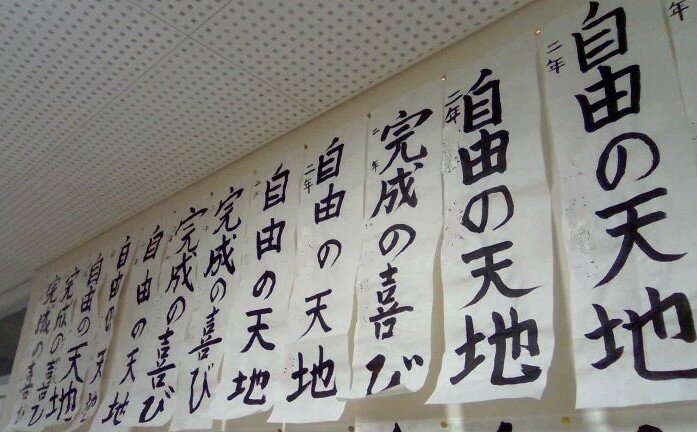 年
自由の天地
二年
自由の天地
二年
完成の喜び
二年
自由の天地
二年
自由の天地
完成の喜び
完成の喜び
自由の天地
自由の天地
自由の天地
完成の喜び
完成の喜び